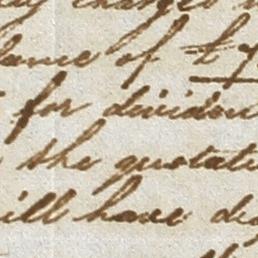 charged
lance of £7
for dividen
the quotati
ill have de